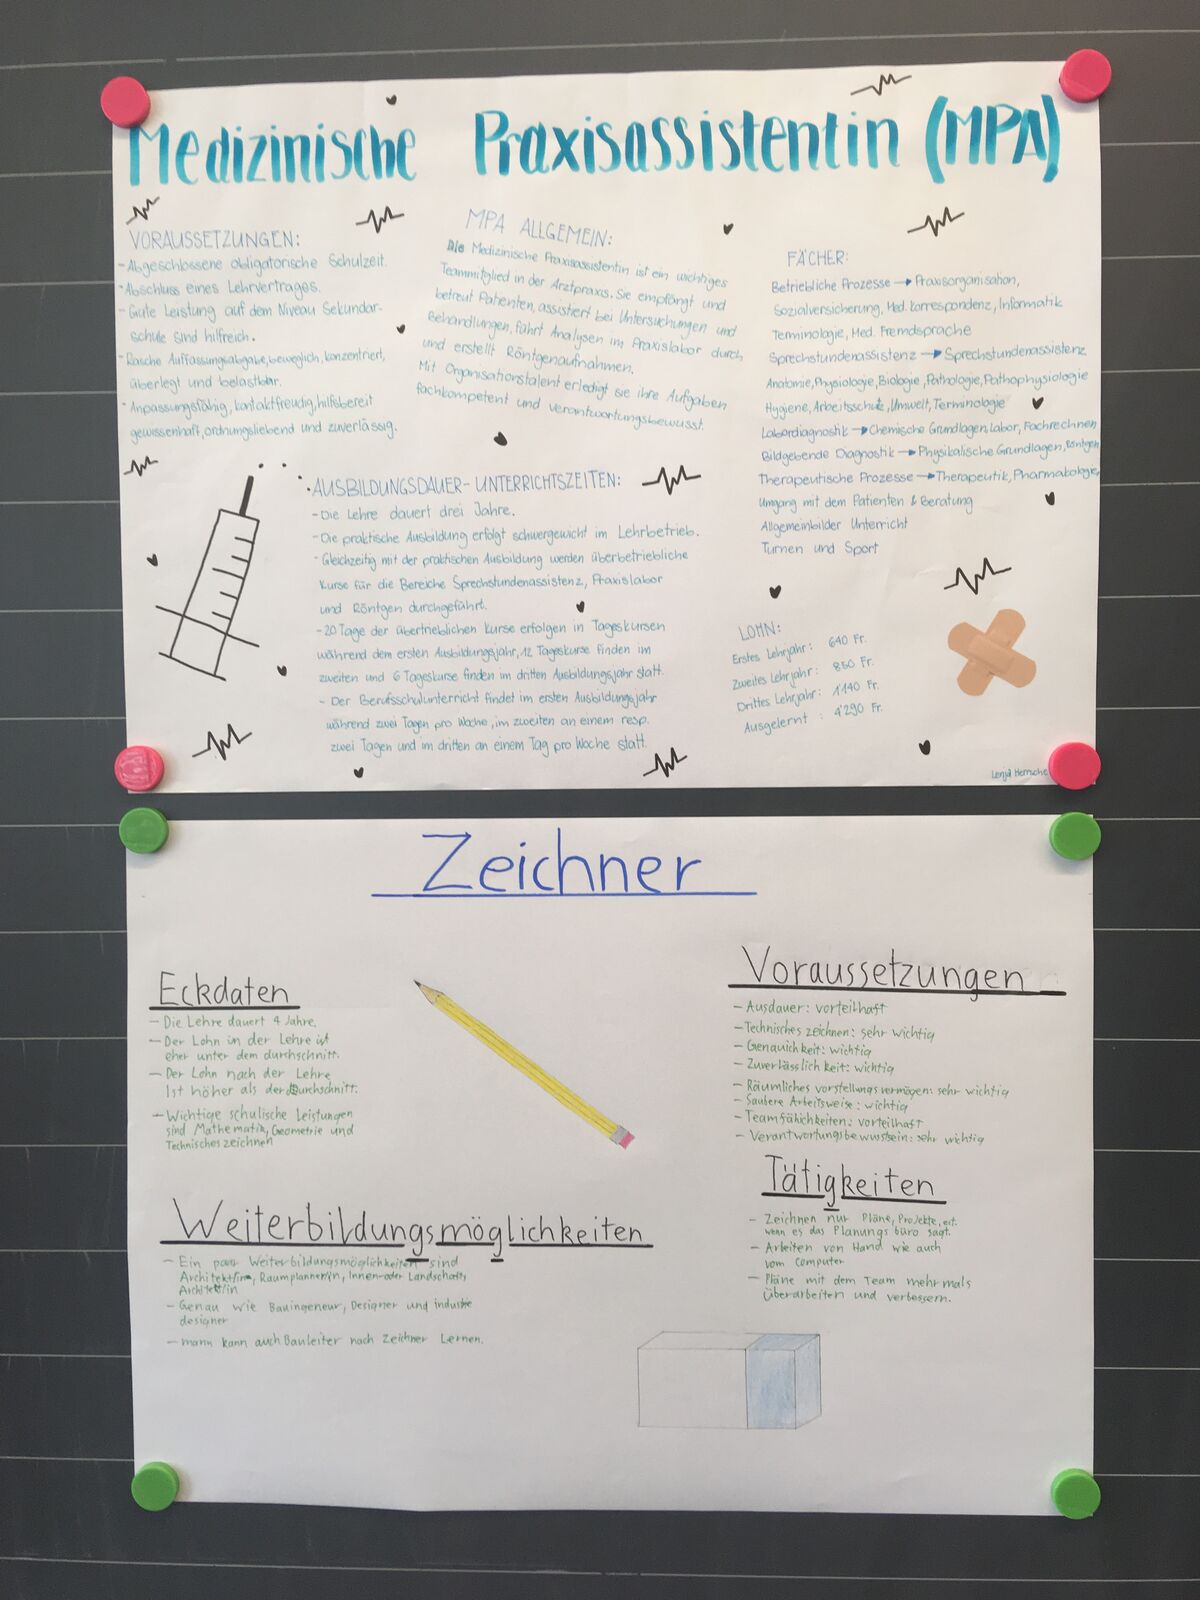 Medizinische Praxisassistentin (MPA)
VORAUSSETZUNGEN:
- Abgeschlossene obligatorische Schulzeit.
- Abschluss eines Lehrvertrages.
- Gute Leistung auf dem Niveau Sekundar-
schule sind hilfreich.
- Rasche Auffassungsabgabe, beweglich, konzentriert,
überlegt und belastbar.
- Anpassungsfähig, kontaktfreudig, hilfsbereit
gewissenhaft, ordnungsliebend und zuverlässig.
MPA ALLGEMEIN:
Die Medizinische Praxisassistentin ist ein wichtiges
Teammitglied in der Arztpraxis. Sie empfängt und
betreut Patienten, assistiert bei Untersuchungen und
Behandlungen, führt Analysen im Praxislabor durch
und erstellt Röntgenaufnahmen.
Mit Organisationstalent erledigt sie ihre Aufgaben
fachkompetent und verantwortungsbewusst.
FÄCHER:
Betriebliche Prozesse → Praxisorganisation,
Sozialversicherung, Med. Korrespondenz, Informatik
Terminologie, Med. Fremdsprache
Sprechstundenassistenz → Sprechstundenassistenz
Anatomie, Physiologie, Biologie, Pathologie, Pathophysiologie
Hygiene, Arbeitsschutz, Umwelt, Terminologie
Labordiagnostik → Chemische Grundlagen, Labor, Fachrechnen
Bildgebende Diagnostik → Physikalische Grundlagen, Röntgen
Therapeutische Prozesse → Therapeutik, Pharmakologie,
Umgang mit dem Patienten & Beratung
Allgemeinbilder Unterricht
Turnen und Sport
AUSBILDUNGSDAUER - UNTERRICHTSZEITEN:
- Die Lehre dauert drei Jahre.
- Die praktische Ausbildung erfolgt schwergewicht im Lehrbetrieb.
- Gleichzeitig mit der praktischen Ausbildung werden überbetriebliche
Kurse für die Bereiche Sprechstundenassistenz, Praxislabor
und Röntgen durchgeführt.
- 20 Tage der übertrieblichen Kurse erfolgen in Tageskursen
während dem ersten Ausbildungsjahr, 12 Tageskurse finden im
zweiten und 6 Tageskurse finden im dritten Ausbildungsjahr statt.
- Der Berufsschulunterricht findet im ersten Ausbildungsjahr
während zwei Tagen pro Woche, im zweiten an einem resp.
zwei Tagen und im dritten an einem Tag pro Woche statt.
LOHN:
Erstes Lehrjahr: 640 Fr.
Zweites Lehrjahr: 850 Fr.
Drittes Lehrjahr: 1'140 Fr.
Ausgelernt : 4'290 Fr.
Zeichner
Eckdaten
- Die Lehre dauert 4 Jahre.
- Der Lohn in der Lehre ist
eher unter dem durchschnitt.
- Der Lohn nach der Lehre
Ist höher als der Durchschnitt.
- Wichtige schulische Leistungen
sind Mathematik, Geometrie und
Technisches zeichnen
Voraussetzungen
- Ausdauer: vorteilhaft
- Technisches zeichnen: sehr wichtig
- Genauichkeit: wichtig
- Zuverlässlich keit: wichtig
- Räumliches vorstellungsvermögen: sehr wichtig
- Saubere Arbeitsweise: wichtig
- Teamfähichkeiten: vorteilhaft
- Verantwortungsbewusstsein: sehr wichtig
Tätigkeiten
- Zeichnen nur Pläne, Projekte, ect.
wenn es das Planungs büro sagt.
- Arbeiten von Hand wie auch
vom Computer
- Pläne mit dem Team mehrmals
überarbeiten und verbessern.
Weiterbildungsmöglichkeiten
- Ein paar Weiterbildungsmöglichkeiten sind
Architekt/in, Raumplanner/in, Innen-oder Landschafts
Architekt/in
- Genau wie Bauingeneur, Designer und industrie
designer
- mann kann auch Bauleiter nach Zeichner Lernen.